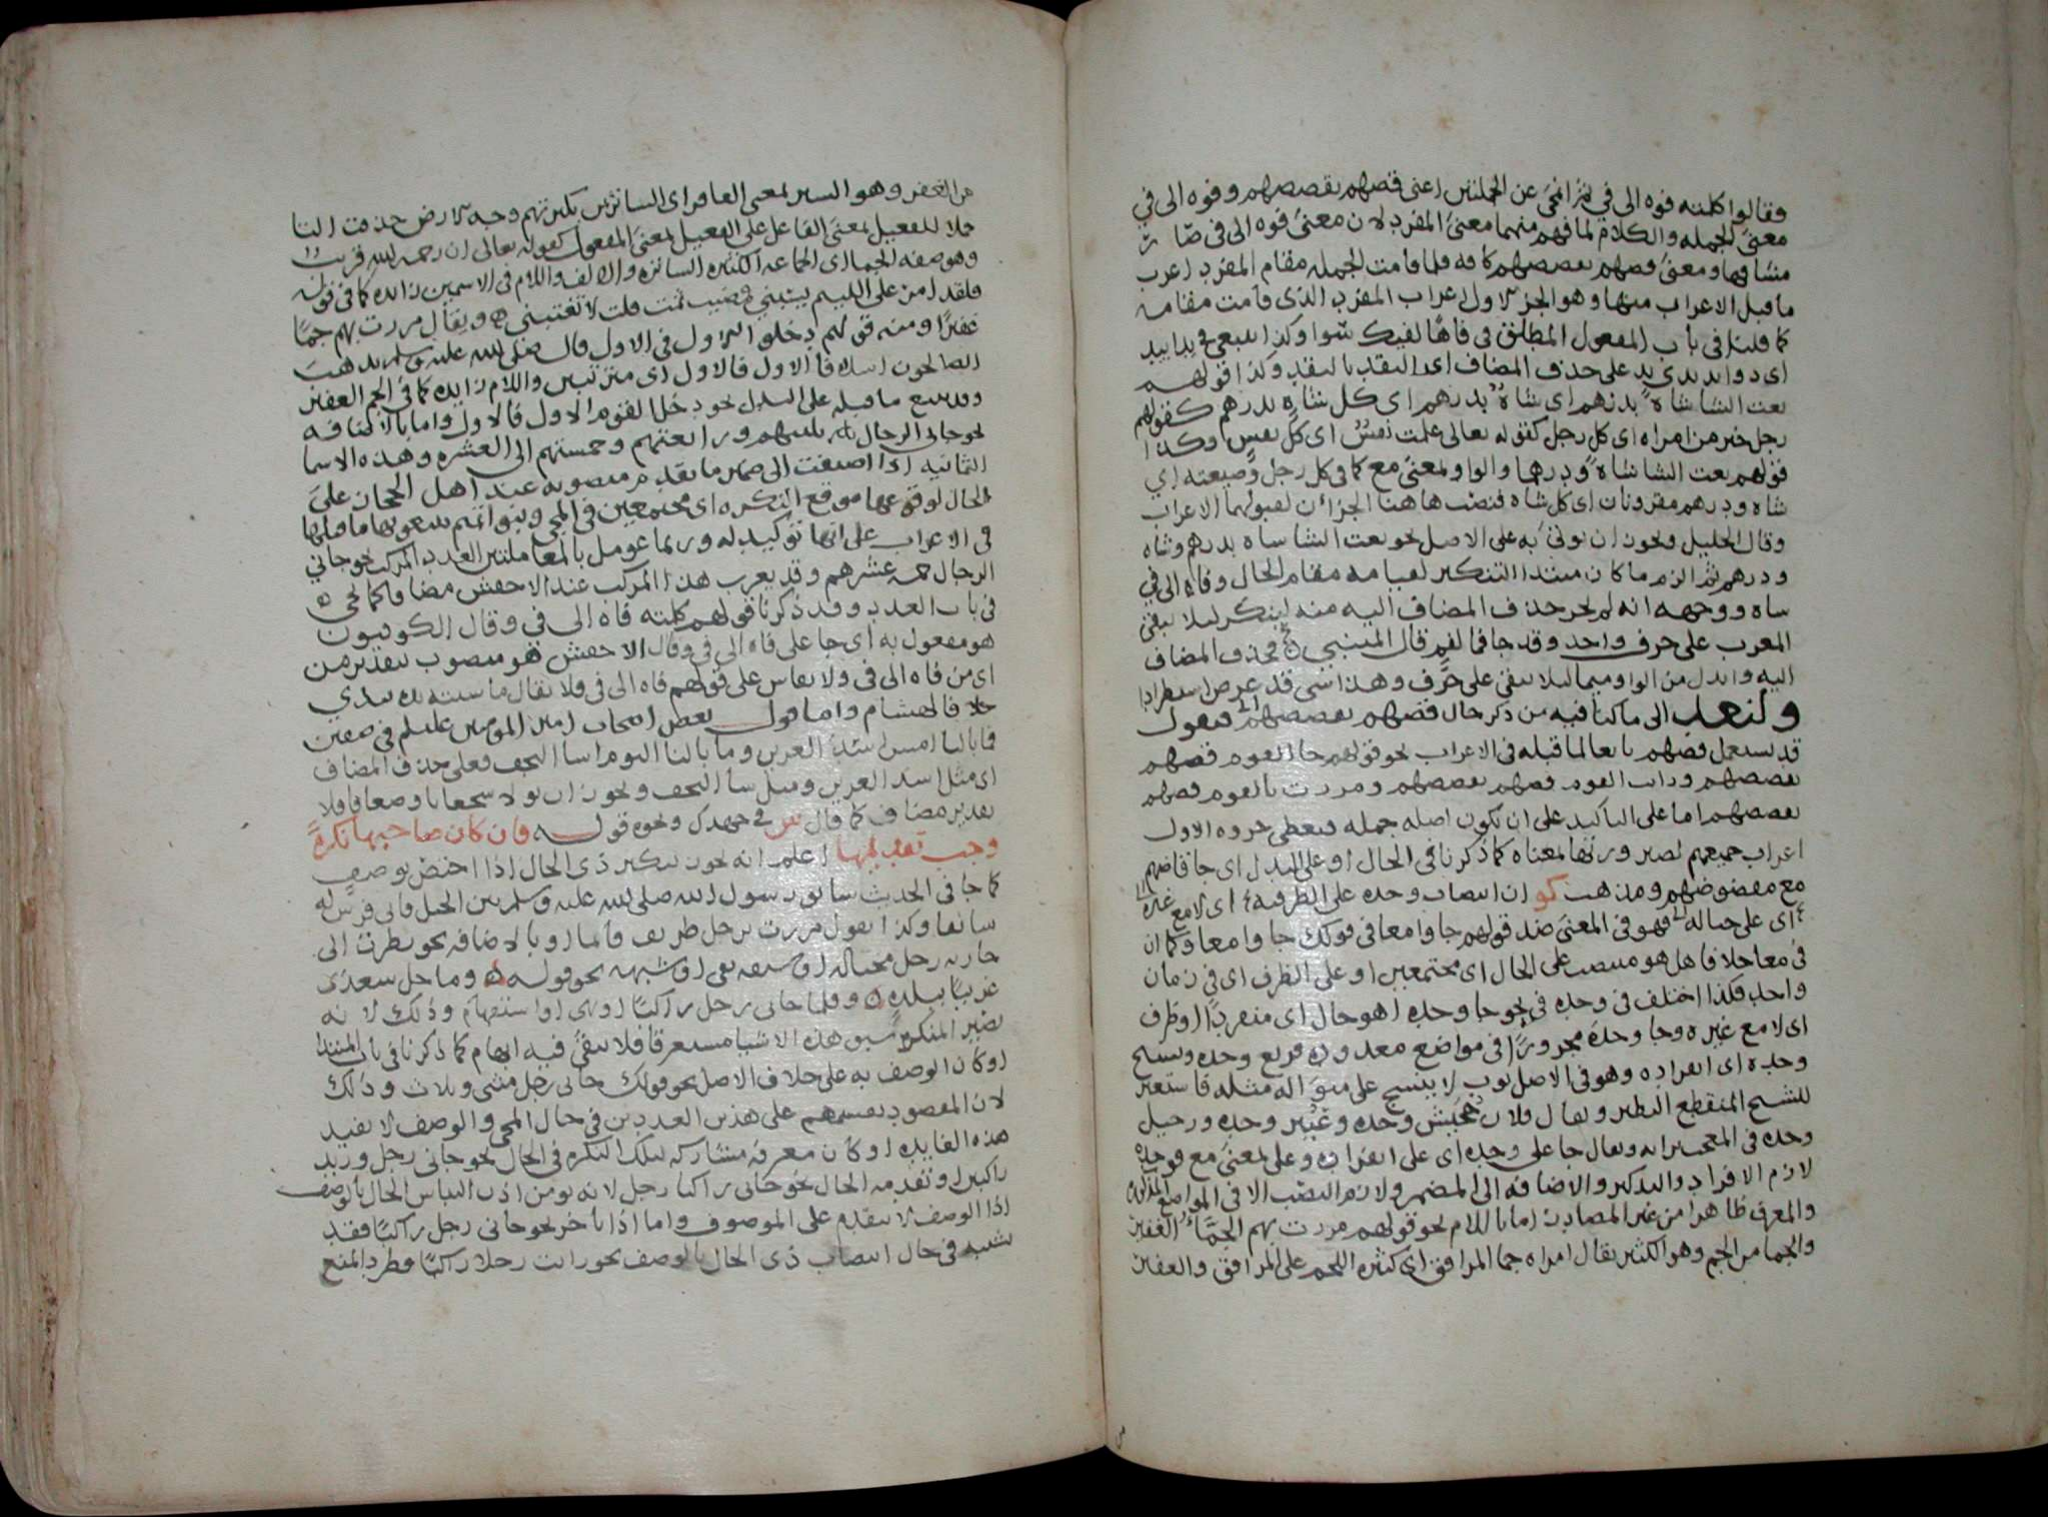 فقالوا كلمته فوه الى في ثم انمحى عن الجملتين اعنى قضهم بقضيضهم وفوه الى في
معنى الجمله والكلام لما فهم منهما معنى المفرد لان معنى فوه الى في صار
مشافها ومعنى قضهم بقضيضهم كافه فلما قامت الجمله مقام المفرد اعرب
ما قبل الاعراب منها وهو الجزء الاول اعراب المفرد الذى قامت مقامه
كما قلنا فى باب المفعول المطلق فى فاها لفيك سوا وكذا
اى يد على حذف المضاف اى النقد بالنقد وكذا قولهم
بعت الشا شاة بدرهم اى شاة بدرهم اى كل شاه بدرهم كقولهم
رجل خير من امراه اى كل رجل كقوله تعالى علمت نفس اى كل نفس وكذا
قولهم بعت الشا شاة ودرهما والواو بمعنى مع كما فى كل رجل وضيعته اي
شاه ودرهم مقرونان اى كل شاه فنصب هاهنا الجزان لقبولهما الاعراب
وقال الخليل ويجوز ان يوتى به على الاصل نحو بعت الشا شاه بدرهم وشاه
ودرهم ثم الزم ما كان مبتدا التنكير لقيامه مقام الحال وفاه الى في
شاه ووجهه انه لم يجز حذف المضاف اليه منه لينكر ليلا يبقى
المعرب على حرف واحد وقد جا فما لفم قال المتنبي فحذف المضاف
اليه وابدل من الواو ميما ليلا يبقى على حرف وهذا شى قد عرض استطرادا
ولنعد الى ما كنا فيه من ذكر حال قضهم بقضيضهم فنقول
قد يستعمل قضهم تابعا لما قبله فى الاعراب نحو قولهم جا القوم قضهم
بقضيضهم ورايت القوم قضهم بقضيضهم ومررت بالقوم قضهم
بقضيضهم اما على التاكيد على ان يكون اصله جمله فيعطى جزوه الاول
اعراب جميعهم لصيرورتها بمعناه كما ذكرنا فى الحال او على البدل اى جا قاضهم
مع مقضوضهم ومذهب كو ان انتصاب وحده على الظرفيه اى لا مع غيره
اى على حياله فهو فى المعنى ضد قولهم جاوا معا فى قولك جاوا معا وكما ان
فى معا خلافا هل هو منتصب على الحال اى مجتمعين او على الظرف اى فى زمان
واحد فكذا اختلف فى وحده فى نحو جا وحده اهو حال اى منفردا او ظرف
اى لا مع غيره وجا وحده مجرورا فى مواضع معدوده قريع وحده ونسيج
وحده اى انفراده وهو فى الاصل ثوب لا ينسج على منواله مثله فاستعير
للشيخ المنقطع النظير ويقال فلان جحيش وحده وعيير وحده ورجيل
وحده فى المعجب برايه ويقال جا على وحده اى على انفراده وعلى بمعنى مع فوحده
لازم الافراد والتذكير والاضافه الى المضمر ولازم النصب الا فى المواضع المذكوره
والمعرف ظاهرا من غير المصادر اما باللام نحو قولهم مررت بهم الجما الغفير
والجما من الجم وهو الكثير يقال امراه جما المرافق اى كثيره اللحم على المرافق والغفير
من الغفر وهو الستر بمعنى الغافر اى الساترين بكثرتهم وجه الارض حذفت التا
حملا للفعيل بمعنى الفاعل على الفعيل بمعنى المفعول كقوله تعالى ان رحمه الله قريب
وهو صفه الجما اى الجماعه الكثيره الساتره والالف واللام فى الاسمين زايده كما فى قوله
فلقد امر على اللييم يسبني فمضيت ثمت قلت لا تعنيني ويقال مررت بهم جما
غفيرا ومنه قولهم دخلوا الاول فى الاول قال صلى الله عليه وسلم يذهب
الصالحون اسلافا الاول فالاول اى مترتبين واللام زايده كما فى الجم الغفير
وقد يتبع ما قبله على البدل نحو دخل القوم الاول فالاول واما بالاضافه
نحو جانى الرجال ثلثتهم ورابعتهم وخمستهم الى العشره وهذه الاسما
الثمانيه اذا اضيفت الى ضمير ما تقدم منصوبه عند اهل الحجاز على
الحال لوقوعها موقع النكره اى مجتمعين فى المجى وبنو تميم يتبعونها ما قبلها
فى الاعراب على انها توكيد له وربما عومل بالمعاملتين العدد المركب نحو جاني
الرجال خمسه عشرهم وقد يعرب هذا المركب عند الاخفش مضافا كما يجى
فى باب العدد وقد ذكرنا قولهم كلمته فاه الى في وقال الكوفيون
هو مفعول به اى جاعلا فاه الى في وقال الاخفش هو منصوب بتقدير من
اى من فاه الى فى ولا يقاس على قولهم فاه الى فى فلا يقال ماشيته يده بيدي
خلافا لهشام واما قول بعض اصحاب امير المومنين عليه السلم فى صفين
فما بالنا امس اسد العرين وما بالنا اليوم شا النجف فعلى حذف المضاف
اى مثل اسد العرين ومثل شا النجف ويجوز ان يولا شجعانا وضعافا فلا
تقدير مضاف كما قال س فى جهدك ونحوه قوله فان كان صاحبها نكرة
وجب تقديمها اعلم انه يجوز تنكير ذى الحال اذا اختص بوصف
كما جا فى الحديث سابق رسول الله صلى الله عليه وسلم بين الخيل فاتى فرس له
سابقا وكذا تقول مررت برجل ظريف قايما او بالاضافه نحو نظرت الى
جاريه رجل مختاله او سبقه نفى او شبهه نحو قوله وما حل سعدى
غريبا ببلده وقلما جانى رجل راكبا او نهى او استفهام وذلك لانه
تصير المنكره بسبق هذه الاشيا مستغرقا فلا يبقى فيه ابهام كما ذكرنا فى باب المبتدا
او كان الوصف به على خلاف الاصل نحو قولك جانى رجل مثنى وثلاث وذلك
لان المقصود تقسيمهم على هذين العددين فى حال المجى والوصف لا يفيد
هذه الفايده او كان معرفه مشاركه لتلك النكره فى الحال نحو جانى رجل وزيد
راكبين او تقدمه الحال نحو جانى راكبا رجل لانه يومن اذن التباس الحال بالوصف
اذا الوصف لا يتقدم على الموصوف واما اذا تاخر نحو جانى رجل راكبا فقد
يشتبه فى حال انتصاب ذى الحال بالوصف نحو رايت رجلا راكبا فطرد المنع